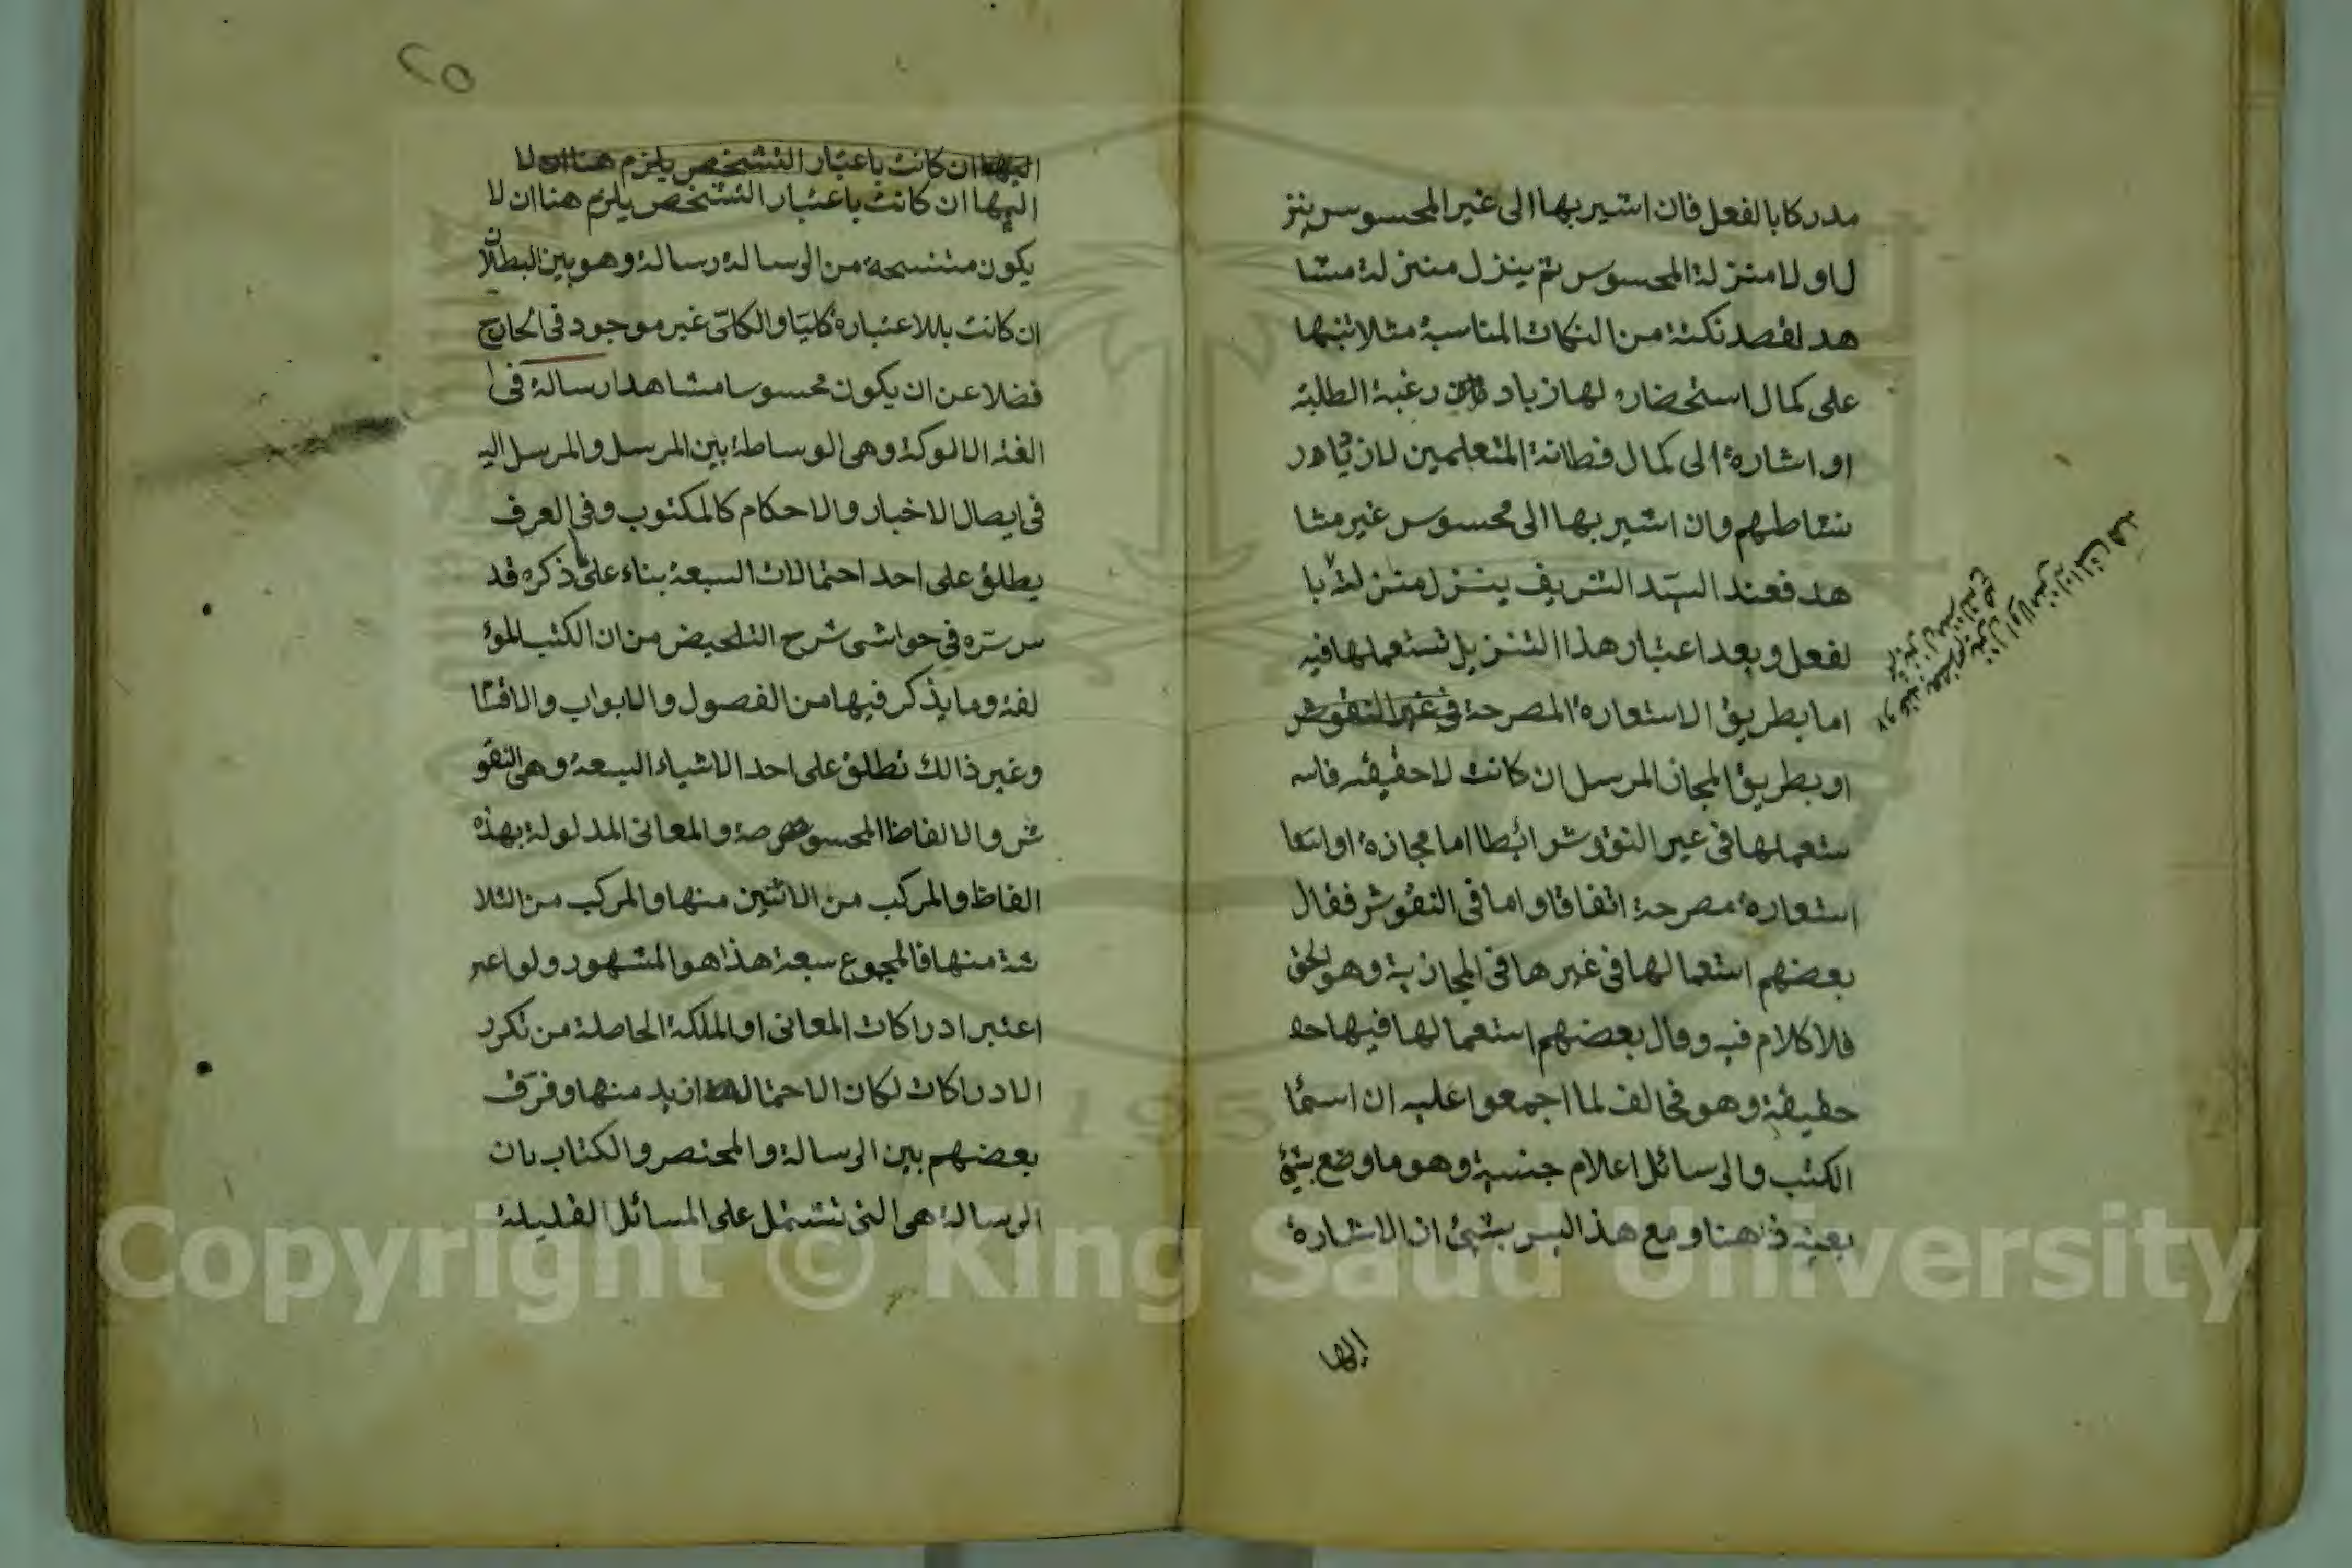 مدركا بالفعل فان اشير بها الى غير المحسوس ينز
ل اولا منزلة المحسوس ثم ينزل منزلة مشا
هد لقصد نكتة من النكات المناسبة مثلا تنبها
على كمال استحضاره لها زياد رغبة الطلبة
او اشارة الى كمال فطانة المتعلمين لازياد
نشاطهم وان اشير بها الى محسوس غير مشا
هد فعند السيد الشريف ينزل منزلته با
لفعل وبعد اعتبار هذا التنزيل تستعملها فيه
اما بطريق الاستعارة المصرحة في غير النقوش
او بطريق المجاز المرسل ان كانت لا حقيقة فاسـ
ستعملها في غير النقوش ايضا اما مجازة او استعا
استعارة مصرحة اتفاقا واما في النقوش فقال
بعضهم استعمالها في غيرها في المجازية وهو الحق
فلا كلام فيه وقال بعضهم استعمالها فيها حـ
حقيقة وهو مخالف لما اجمعوا عليه ان اسما
الكتب والرسائل اعلام جنسية وهو ما وضع بشئ
بعينه ذهنا ومع هذا ليس بشئ اذ الاشارة
اليها
٢٥
اليها ان كانت باعتبار التشخص يلزم هنا ان لا
اليها ان كانت باعتبار التشخص يلزم هنا ان لا
يكون متنسحة من الرسالة رسالة وهو بين البطلان
ان كانت بالاعتباره كليا والكلى غير موجود في الخارج
فضلا عن ان يكون محسوسا مشاهدا رسالة في ا
الغة الالوكة وهي الوساطة بين المرسل والمرسل اليه
في ايصال الاخبار والاحكام كالمكتوب وفي العرف
يطلق على احد احتمالات السبعة بناء على ما ذكره قد
س سره في حواشى شرح التلحيض من ان الكتب المؤ
لفة وما يذكر فيها من الفصول والابواب والاقسا
وغير ذالك تطلق على احد الاشياء السبعة وهي النقو
ش والالفاظ المحسوصة والمعانى المدلولة بهذه
الفاظ والمركب من الاثنين منها والمركب من الثلا
ثة منها فالمجموع سبعة هذا هو المشهور ولو اعبر
اعتبر ادراكات المعانى او الملكة الحاصلة من تكرر
الادراكات لكان الاحتمال ازيد منها وفرق
بعضهم بين الرسالة والمختصر والكتاب بان
الرسالة هي التى تشتمل على المسائل القليلة
Copyright © King Saud University
195